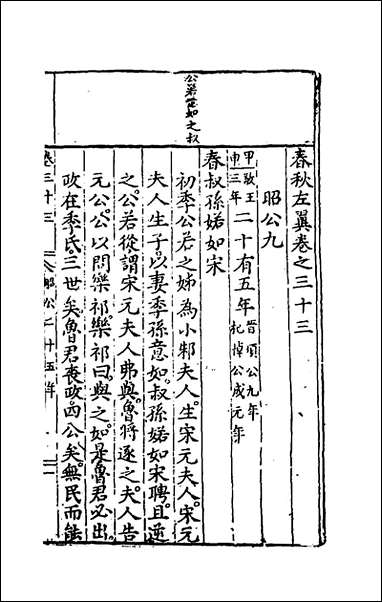 春秋左翼卷之三十三
昭公九
甲申敬王三年二十有五年晉頃公九年杞悼公成元年
春叔孫婼如宋
初季公若之姊為小邾夫人生宋元夫人宋元
夫人生子以妻季孫意如叔孫婼如宋聘且逆
之公若從謂宋元夫人弗與魯將逐之夫人告
元公公以問樂祁樂祁曰與之如是魯君必出
政在季氏三世矣魯君喪政四公矣無民而能
卷三十三 昭公二十五年 一
公若意如之叔